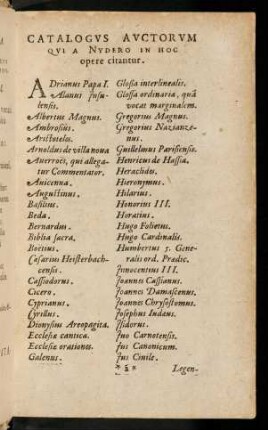 CATALOGVS AVCTORVM
QVI A NYDERO IN HOC
opere citantur.
ADrianus Papa I.
Alanus Insu-
lensis.
Albertus Magnus.
Ambrosius.
Aristoteles.
Arnoldus de villa noua
Auerroës, qui allega-
tur Commentator.
Auicenna.
Augustinus.
Basilius.
Beda.
Bernardus.
Biblia sacra.
Boëtius.
Cæsarius Heisterbach-
censis.
Cassiodorus.
Cicero.
Cyprianus.
Cyrillus.
Dionysius Areopagita.
Ecclesiæ cantica.
Ecclesiæ orationes.
Galenus.
Glossa interlinealis.
Glossa ordinaria, quā
vocat marginalem.
Gregorius Magnus.
Gregorius Nazianze-
nus.
Guilielmus Parisiensis.
Henricus de Hassia.
Heraclides.
Hieronymus.
Hilarius.
Honorius III.
Horatius.
Hugo Folietus.
Hugo Cardinalis.
Humbertus 5. Gene-
ralis ord. Prædic.
Innocentius III.
Ioannes Cassianus.
Ioannes Damascenus.
Ioannes Chrysostomus.
Iosephus Iudæus.
Isidorus.
Iuo Carnotensis.
Ius Canonicum.
Ius Ciuile.
* 5 * Legen-